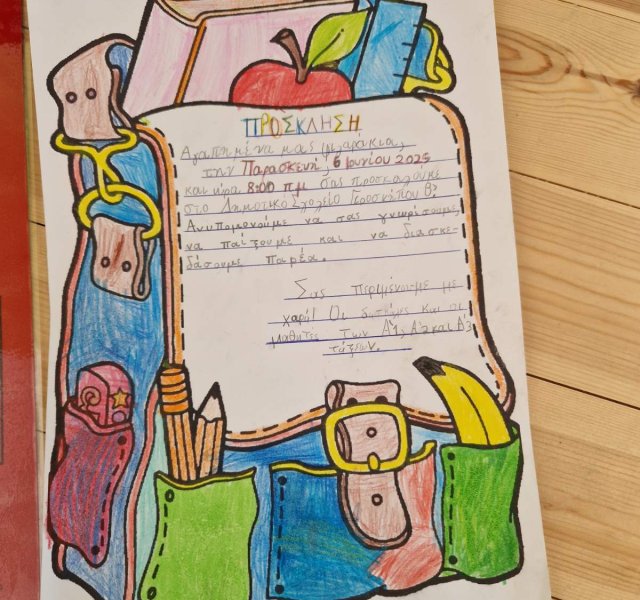 ΠΡΟΣΚΛΗΣΗ
Αγαπημένα μας φιλαράκια,
την Παρασκευή, 6 Ιουνίου 2025
και ώρα 8:00 π.μ. σας προσκαλούμε
στο Δημοτικό Σχολείο Γεροσκήπου Β΄.
Ανυπομονούμε να σας γνωρίσουμε,
να παίξουμε και να διασκε-
δάσουμε παρέα.
Σας περιμένουμε με
χαρά! Οι δασκάλες και οι
μαθητές των Α΄1, Α΄2 και Α΄3
τάξεων.